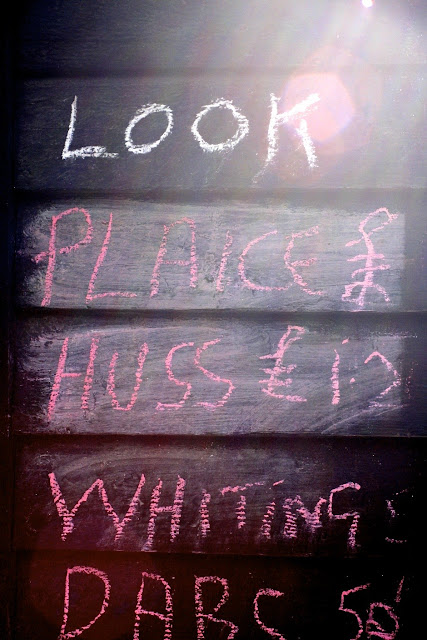 LOOK
PLAICE £
HUSS £
WHITING
DABS 50